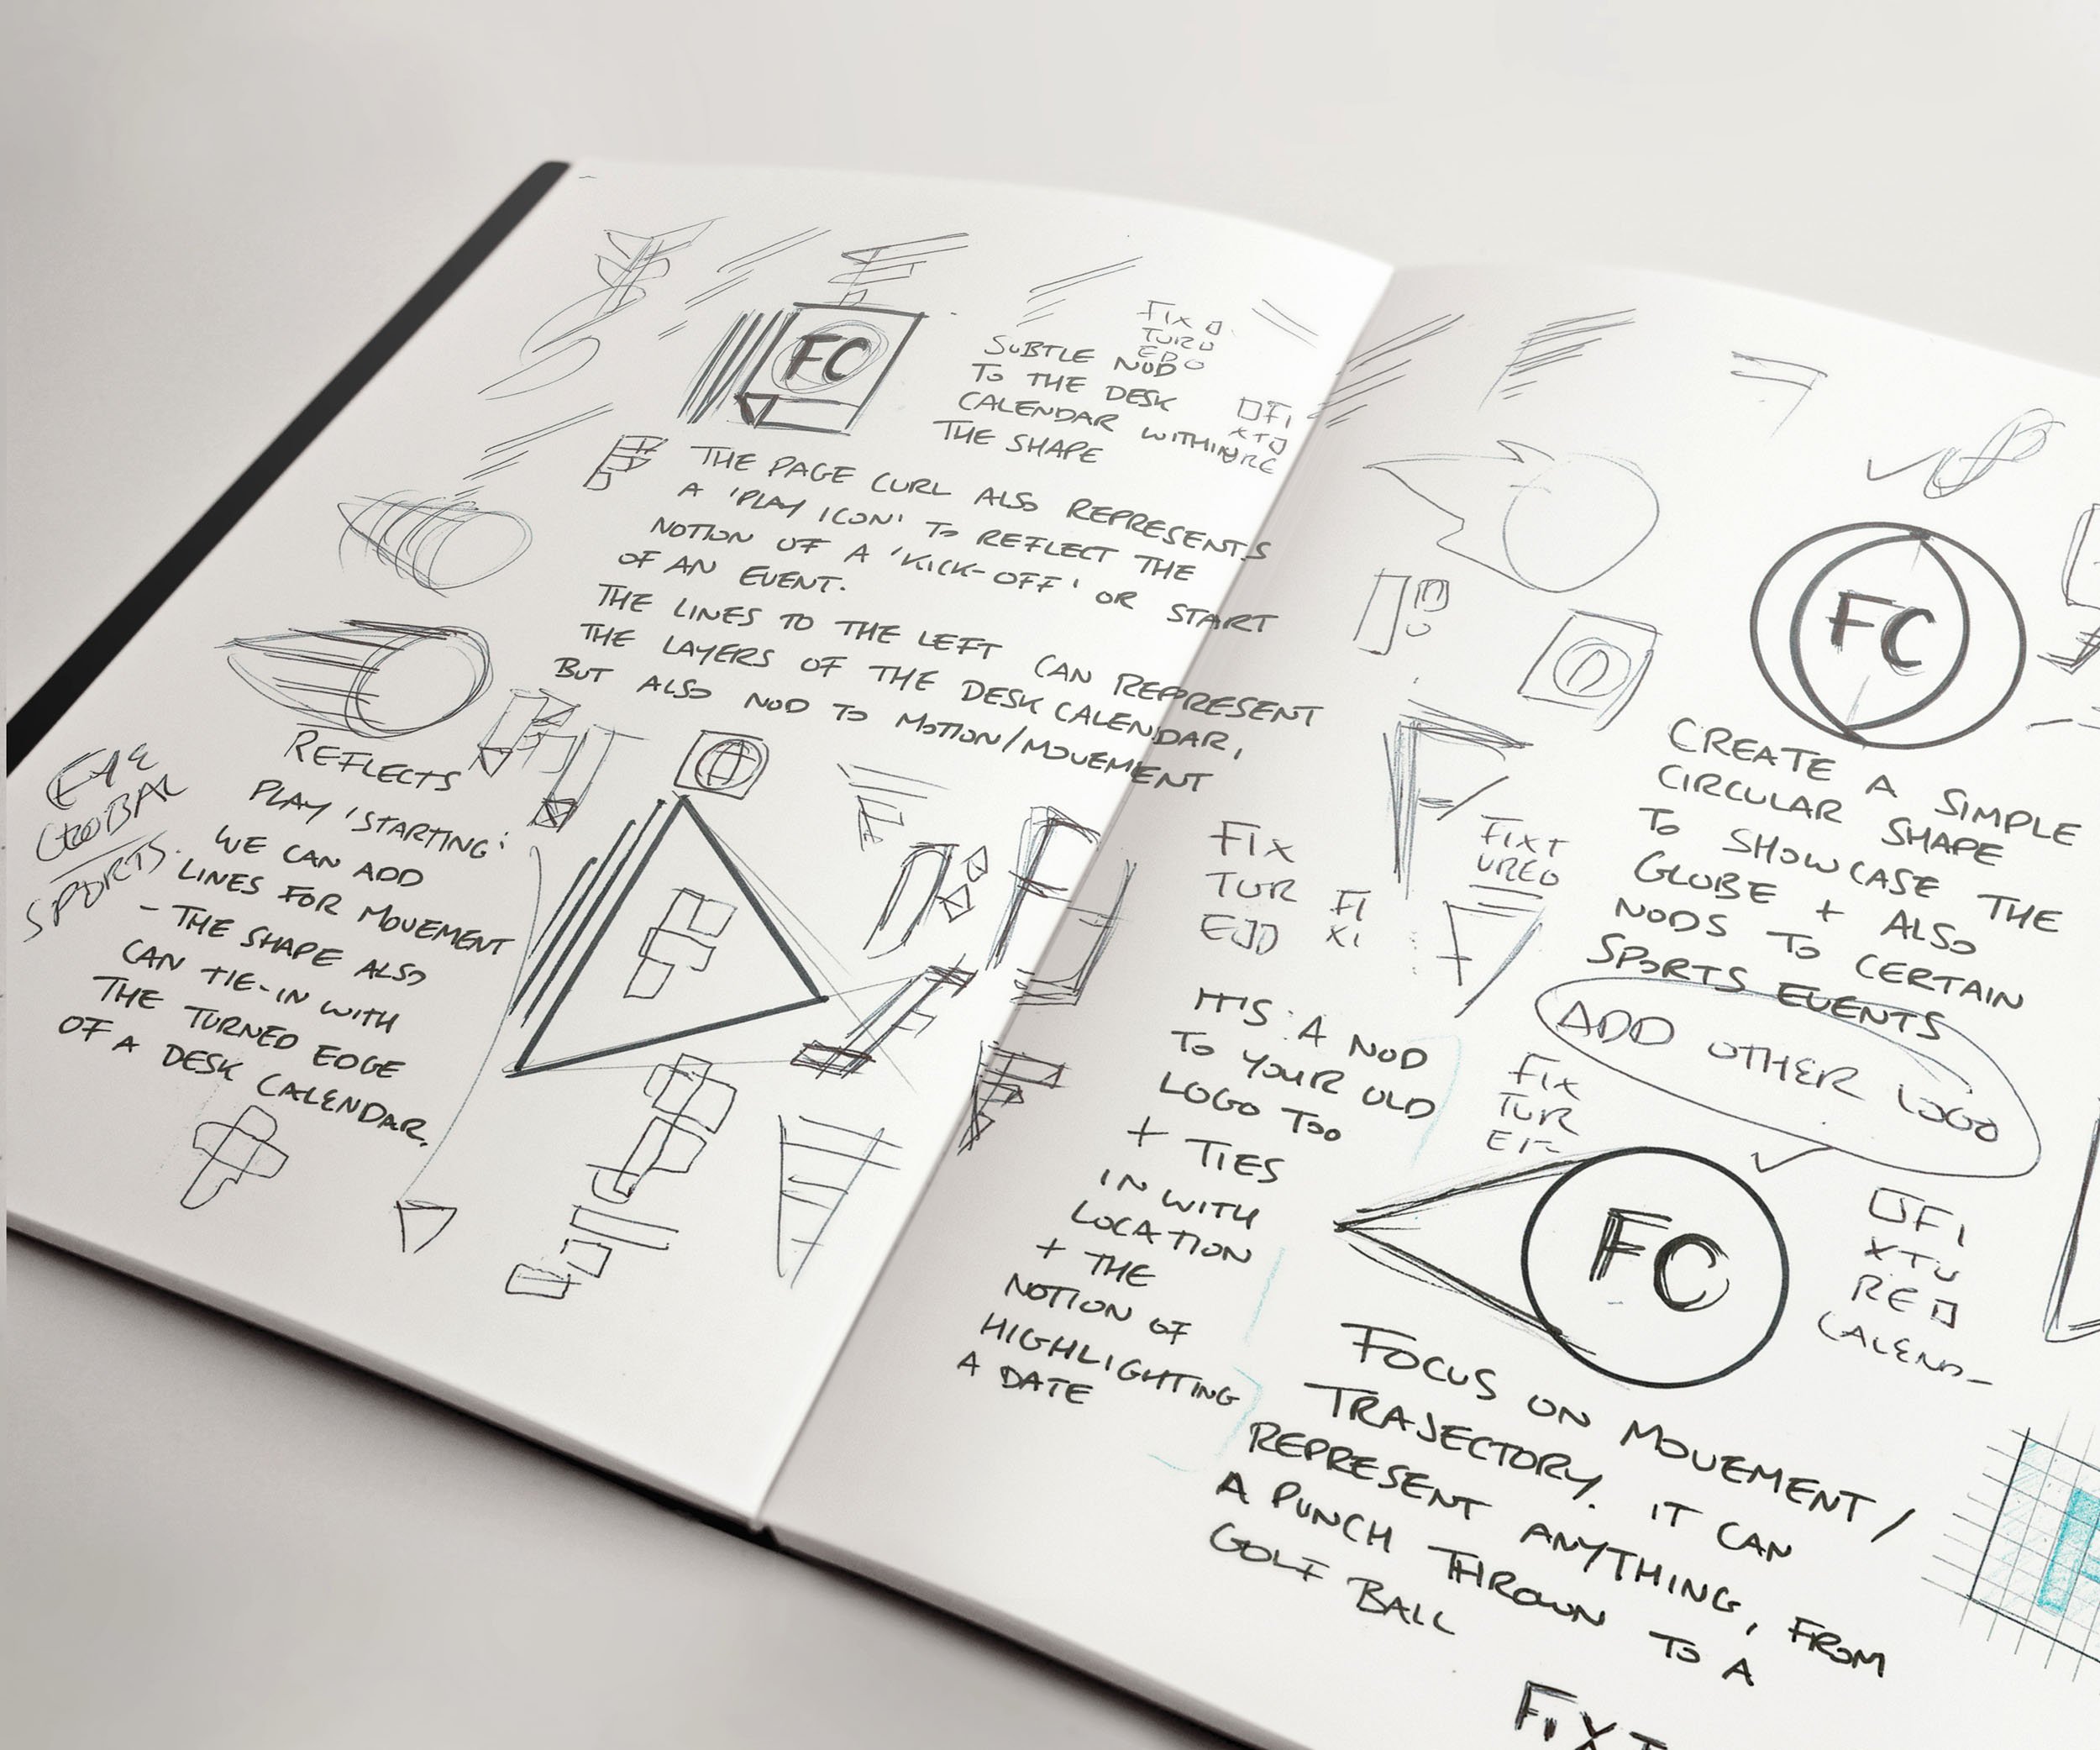 FC
FIX
TUR
ED
SUBTLE NOD
TO THE DESK
CALENDAR WITHIN
THE SHAPE
FI
XTU
RE
THE PAGE CURL ALSO REPRESENTS
A 'PLAY ICON' TO REFLECT THE
NOTION OF A 'KICK-OFF' OR START
OF AN EVENT.
THE LINES TO THE LEFT CAN REPRESENT
THE LAYERS OF THE DESK CALENDAR,
BUT ALSO NOD TO MOTION/MOVEMENT
EYE
GLOBAL
SPORTS.
REFLECTS
PLAY 'STARTING'
WE CAN ADD
LINES FOR MOVEMENT
- THE SHAPE ALSO
CAN TIE-IN WITH
THE TURNED EDGE
OF A DESK CALENDAR.
FC
CREATE A SIMPLE
CIRCULAR SHAPE
TO SHOWCASE THE
GLOBE + ALSO
NODS TO CERTAIN
SPORTS EVENTS
ADD OTHER LOGO
FIX
TUR
E
FI
XI
FIXT
URE
IT'S A NOD
TO YOUR OLD
LOGO TOO
+ TIES
IN WITH
LOCATION
+ THE
NOTION OF
HIGHLIGHTING
A DATE
FIX
TUR
E
FC
FI
XTU
RE
CALEND-
FOCUS ON MOVEMENT/
TRAJECTORY. IT CAN
REPRESENT ANYTHING, FROM
A PUNCH THROWN TO A
GOLF BALL
FIXT